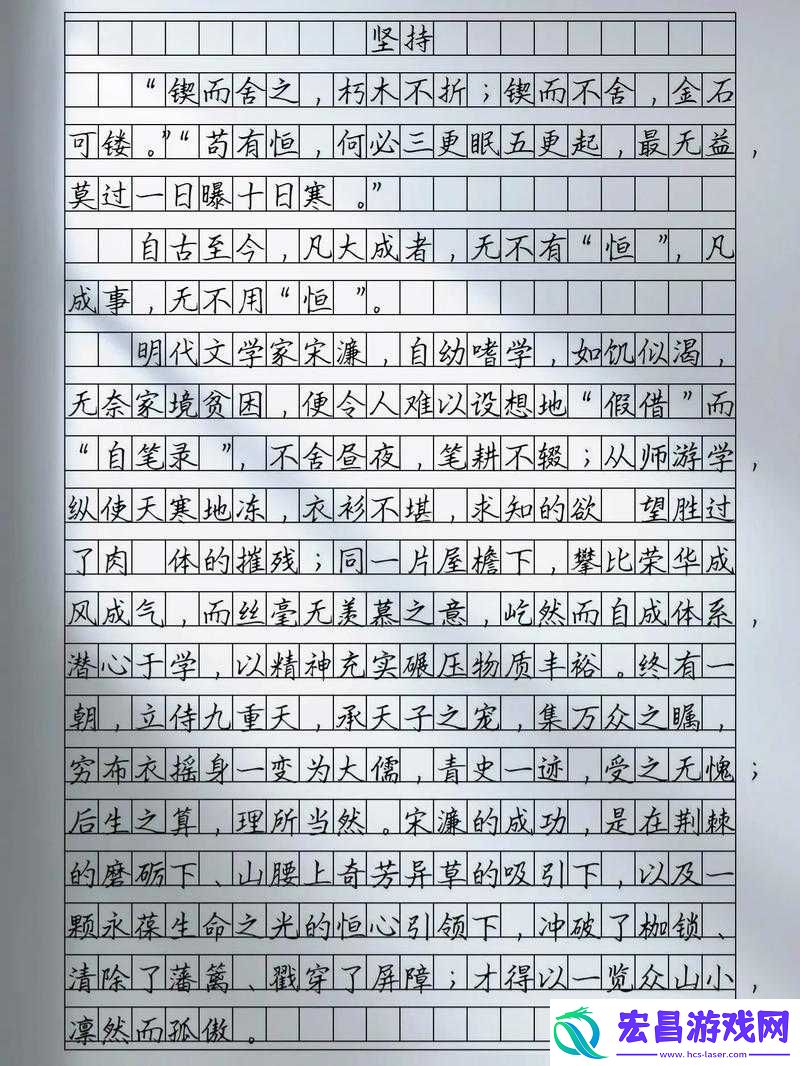 坚持
“锲而舍之，朽木不折；锲而不舍，金石
可镂。”“苟有恒，何必三更眠五更起，最无益，
莫过一日曝十日寒。”
自古至今，凡大成者，无不有“恒”，凡
成事，无不用“恒”。
明代文学家宋濂，自幼嗜学，如饥似渴，
无奈家境贫困，便令人难以设想地“假借”而
“自笔录”，不舍昼夜，笔耕不辍；从师游学，
纵使天寒地冻，衣衫不堪，求知的欲 望胜过
了肉 体的摧残；同一片屋檐下，攀比荣华成
风成气，而丝毫无羡慕之意，屹然而自成体系，
潜心于学，以精神充实碾压物质丰裕。终有一
朝，立侍九重天，承天子之宠，集万众之瞩，
穷布衣摇身一变为大儒，青史一迹，受之无愧；
后生之算，理所当然。宋濂的成功，是在荆棘
的磨砺下、山腰上奇芳异草的吸引下，以及一
颗永葆生命之光的恒心引领下，冲破了枷锁、
清除了藩篱、戳穿了屏障；才得以一览众山小，
凛然而孤傲。
宏昌游戏网
www.hcs-laser.com